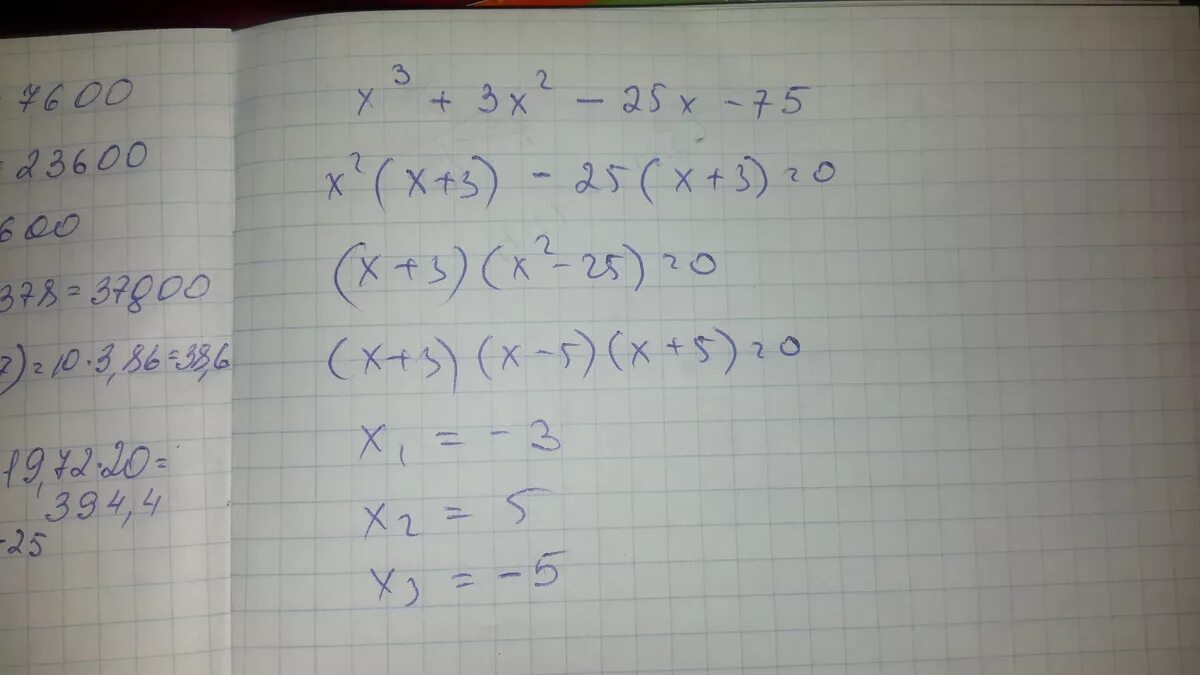 7600
= 23600
600
378 = 37800
7) = 10 · 3,86 = 38,6
19,72 · 20 =
394,4
-25
x³ + 3x² - 25x - 75
x² (x+3) - 25 (x+3) = 0
(x+3) (x² - 25) = 0
(x+3) (x-5) (x+5) = 0
x₁ = -3
x₂ = 5
x₃ = -5